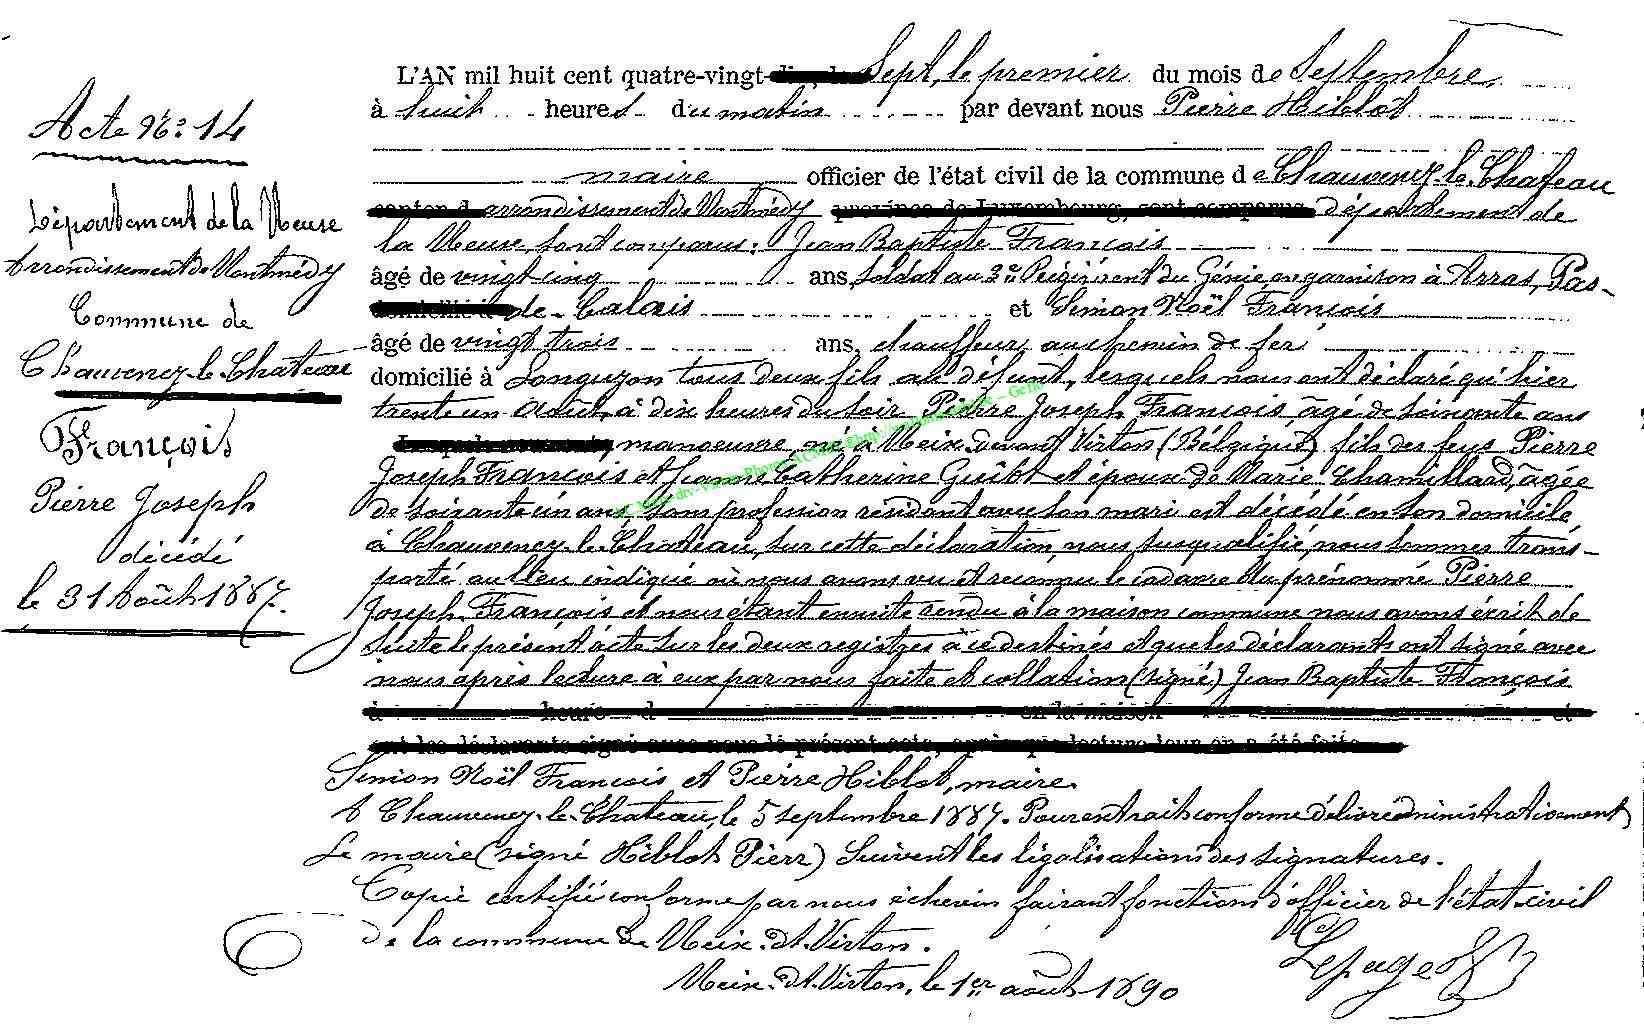 Acte No: 14
Département de la Meuse
Arrondissement de Montmédy
Commune de
Chauvency-le-Chateau
François
Pierre Joseph
décédé
le 31 Août 1887.
L'AN mil huit cent quatre-vingt- Sept, le premier du mois de Septembre,
à huit heures du matin par devant nous Pierre Hiblot
maire officier de l'état civil de la commune de Chauvency-le-Chateau
canton d arrondissement de Montmédy province de Luxembourg, sont comparus département de
la Meuse, sont comparus: Jean Baptiste François
âgé de vingt cinq ans, soldat au 3e Régiment du Génie, en garnison à Arras, Pas-
domicilié à de-Calais et Simon Noël François
âgé de vingt trois ans, chauffeur au chemin de fer
domicilié à Longuyon tous deux fils du défunt, lesquels nous ont déclaré qu'hier
trente un Août, à dix heures du soir Pierre Joseph François, âgé de soixante ans
manoeuvre, né à Meix-devant-Virton (Bélgique) fils des feus Pierre
Joseph François et Jeanne Catherine Guiot et époux de Marie Chamillard, âgée
de soixante un ans, sans profession résidant avec son mari est décédé en son domicile
à Chauvency-le-Chateau, sur cette déclaration, nous susqualifié, nous sommes trans-
porté au lieu indiqué où nous avons vu et reconnu le cadavre du prénommé Pierre
Joseph François et nous étant ensuite rendu à la maison commune nous avons écrit de
suite le présent acte sur les deux registres à ce destinés et que les déclarants ont signé avec
nous après lecture à eux par nous faite et collation (signé) Jean Baptiste François
à heure d en la maison et
ont les déclarants signé avec nous le présent acte, après que lecture leur en a été faite
Simon Noël François et Pierre Hiblot, maire.
A Chauvency-le-Chateau, le 5 septembre 1887. Pour extrait conforme délivré administrativement
Le maire (signé Hiblot Pierr) Suivent les légalisations des signatures.
Copie certifié conforme par nous échevin faisant fonctions d'officier de l'état-civil
de la commune de Meix-dt-Virton.
Meix-dt-Virton, le 1er août 1890
Lepage